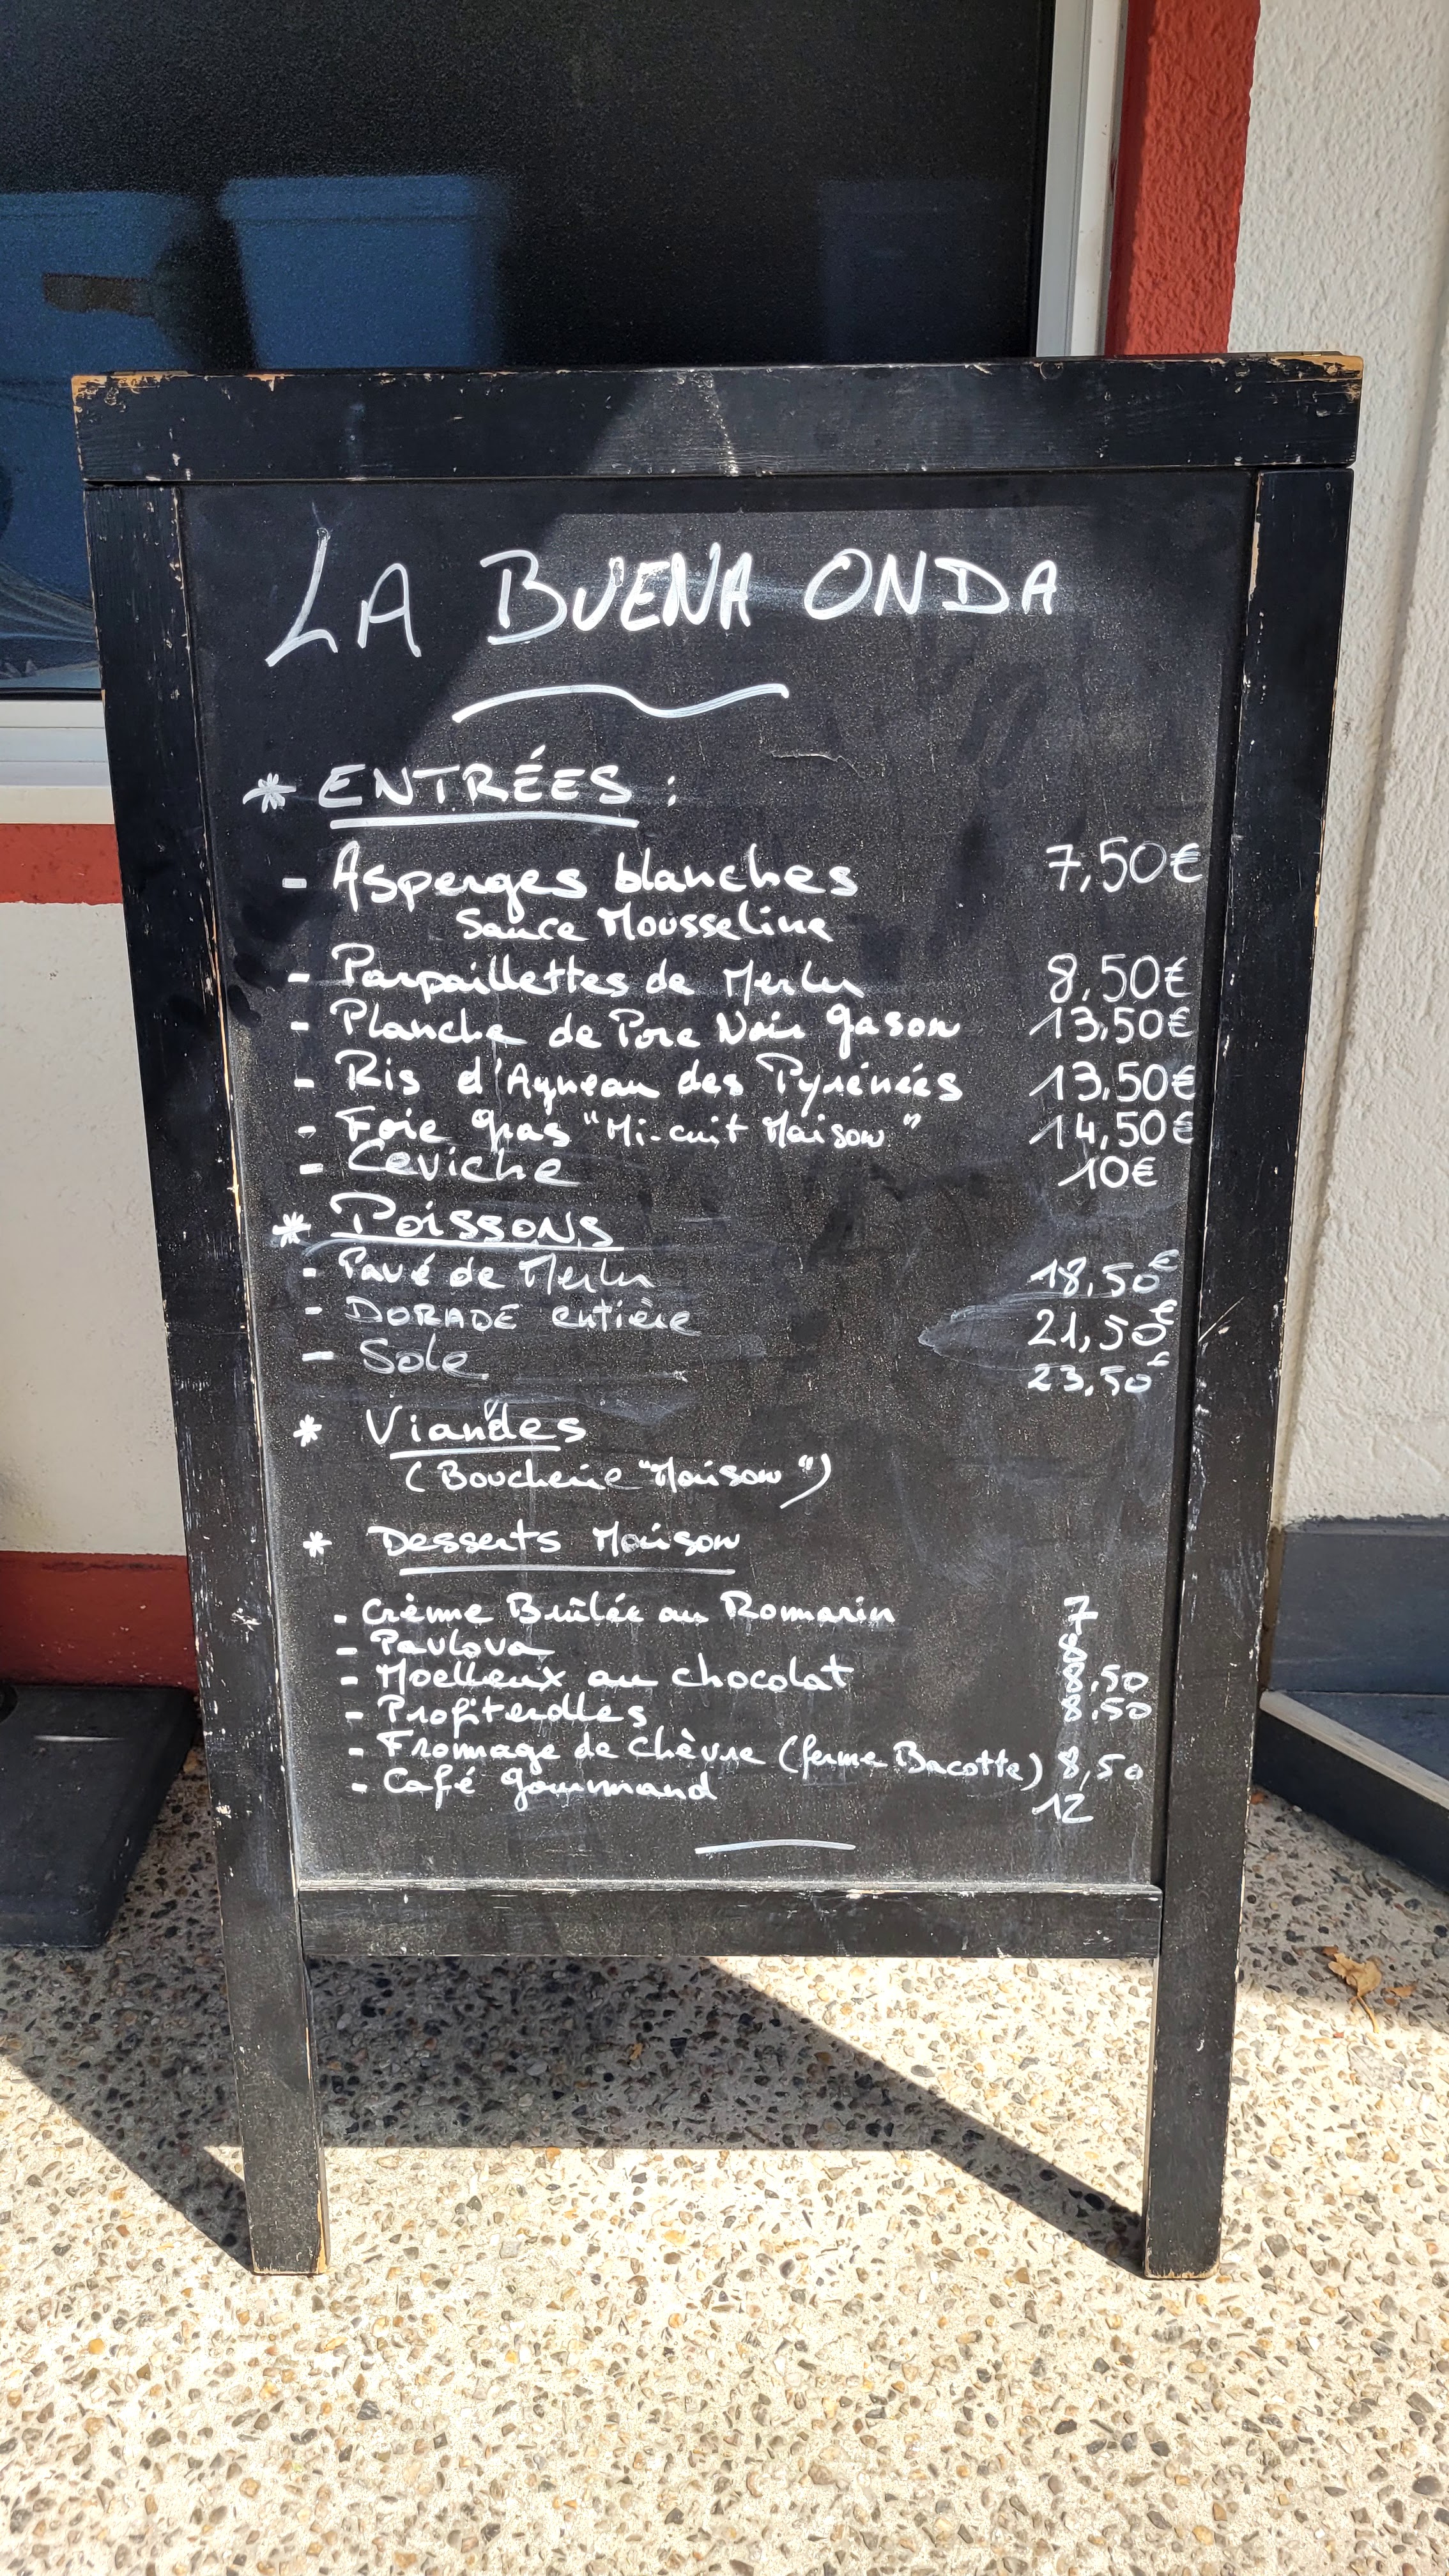 LA BUENA ONDA
* ENTRÉES :
- Asperges blanches 7,50€
Sauce Mousseline
- Parpaillettes de Merlu 8,50€
- Planche de Porc Noir gascon 13,50€
- Ris d'Agneau des Pyrénées 13,50€
- Foie gras "Mi-cuit Maison" 14,50€
- Ceviche 10€
* Poissons
- Pavé de Merlu 18,50€
- DORADE entière 21,50€
- Sole 23,50€
* Viandes
(Boucherie "Maison")
* Desserts Maison
- Crème Brûlée au Romarin 7
- Pavlova 8
- Moelleux au chocolat 8,50
- Profiterolles 8.50
- Fromage de chèvre (ferme Bacotte) 8,50
- Café gourmand 12